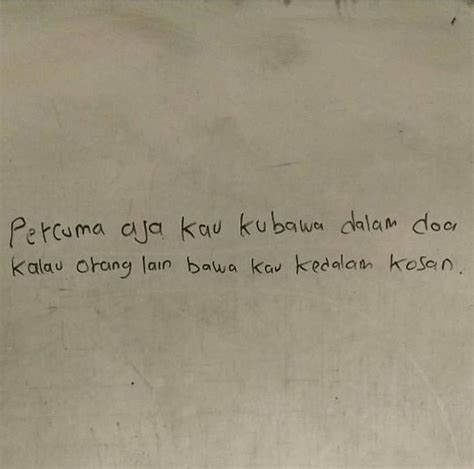 Percuma aja kau kubawa dalam doa
kalau orang lain bawa kau kedalam kosan.